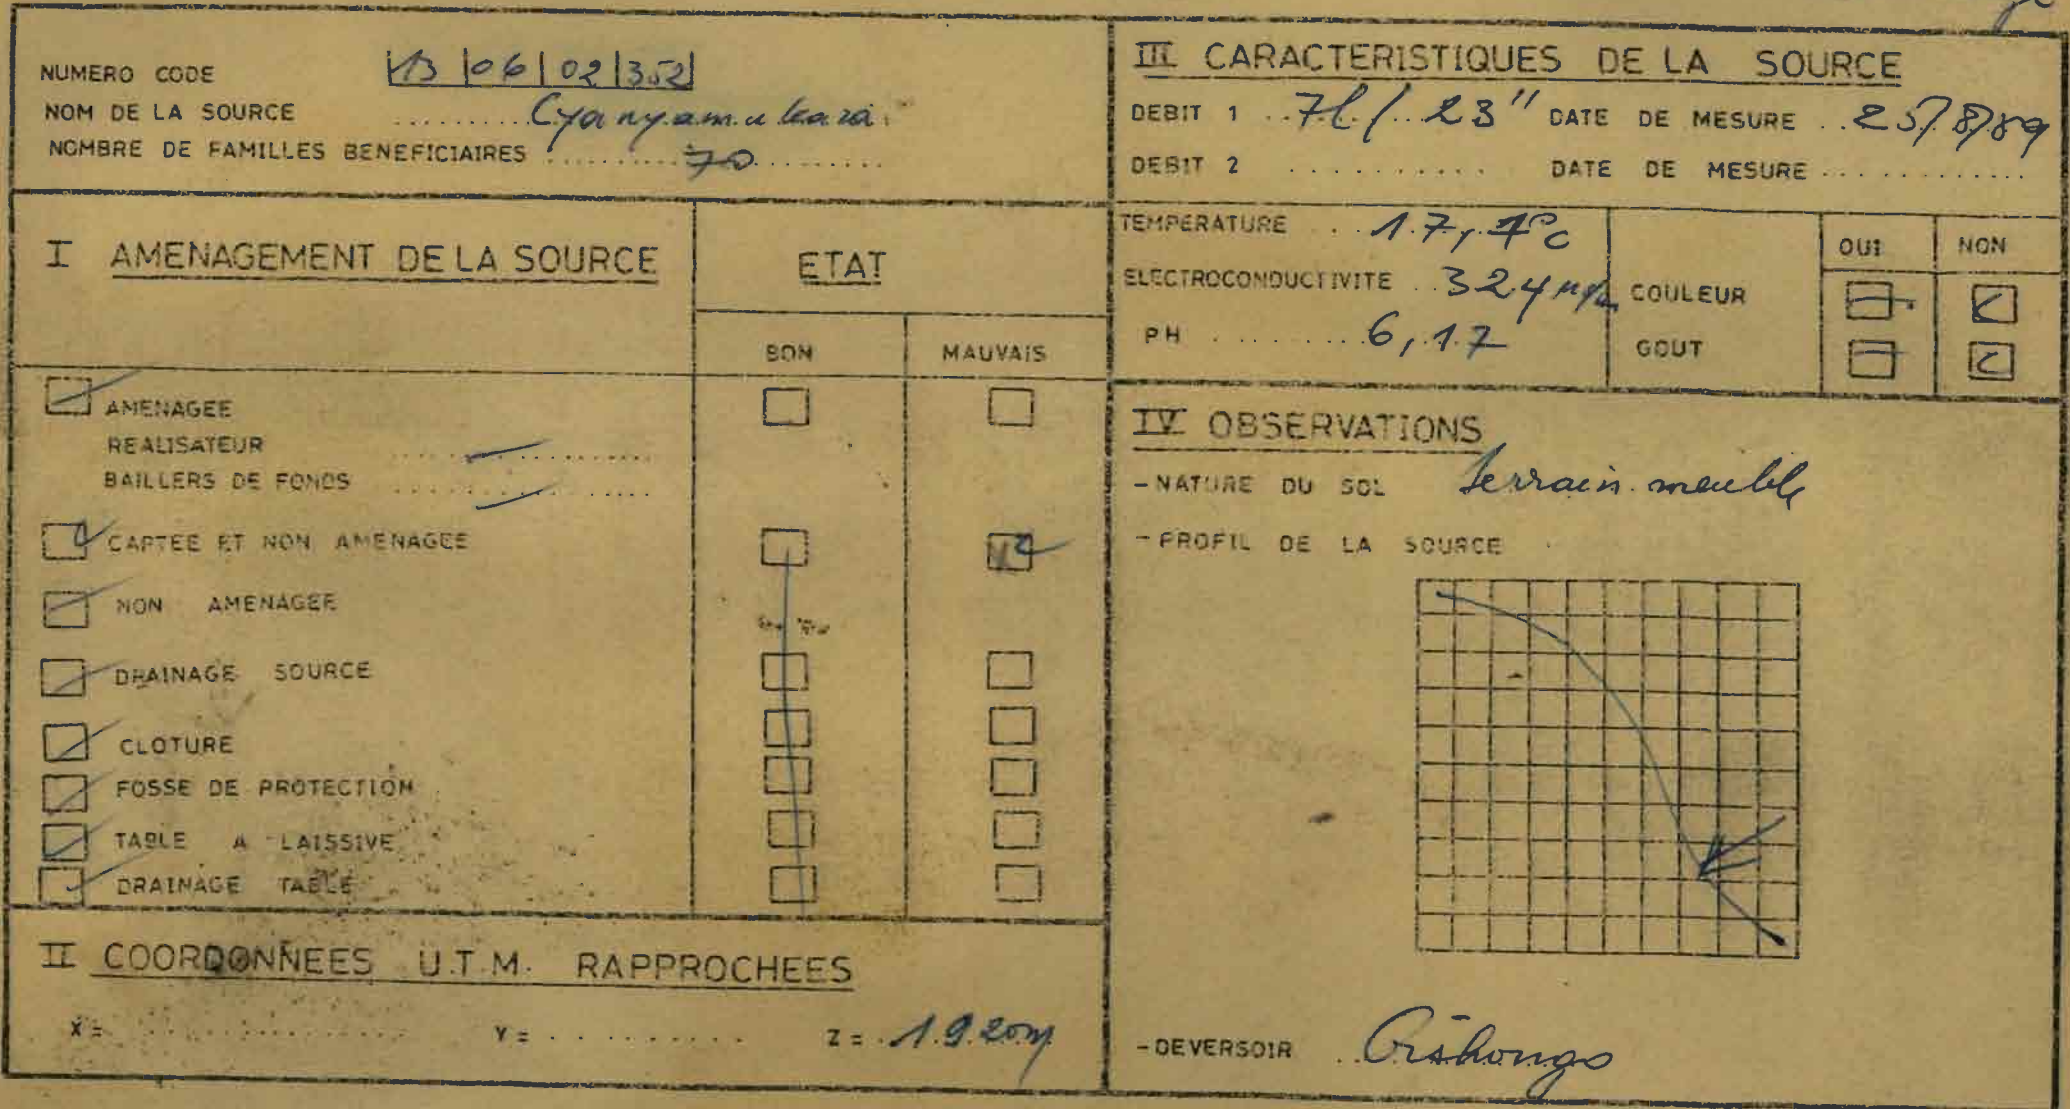 NUMERO CODE 13|06|02|352
NOM DE LA SOURCE ......... Cyanyamukaza
NOMBRE DE FAMILLES BENEFICIAIRES ......... 70 .........
I AMENAGEMENT DE LA SOURCE
ETAT
BON MAUVAIS
AMENAGEE
REALISATEUR
BAILLERS DE FONDS
CAPTEE ET NON AMENAGEE
NON AMENAGEE
DRAINAGE SOURCE
CLOTURE
FOSSE DE PROTECTION
TABLE A LAISSIVE
DRAINAGE TABLE
II COORDONNEES U.T.M. RAPPROCHEES
X = Y = Z = 1920m
III CARACTERISTIQUES DE LA SOURCE
DEBIT 1 7l/23" DATE DE MESURE 25/8/89
DEBIT 2 .......... DATE DE MESURE ..........
TEMPERATURE 17,7°C
ELECTROCONDUCTIVITE 324
PH 6,17
OUI NON
COULEUR
GOUT
IV OBSERVATIONS
- NATURE DU SOL terrain meuble
- PROFIL DE LA SOURCE
- DEVERSOIR Gishongo